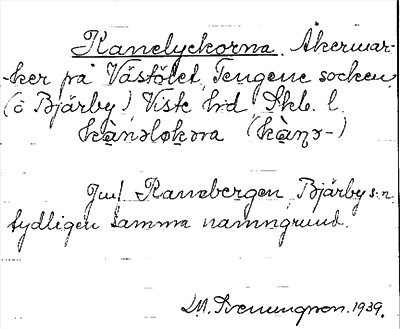 Kanelyckorna. Åkermar-
-ker på Västölet, Tengene socken
(ö Bjärby) Viste hd Skb. l.
kànəlokəra (kàṇə-)
Jmf Ranebergen, Bjärby s:n.
tydligen samma namngrund.
1939.